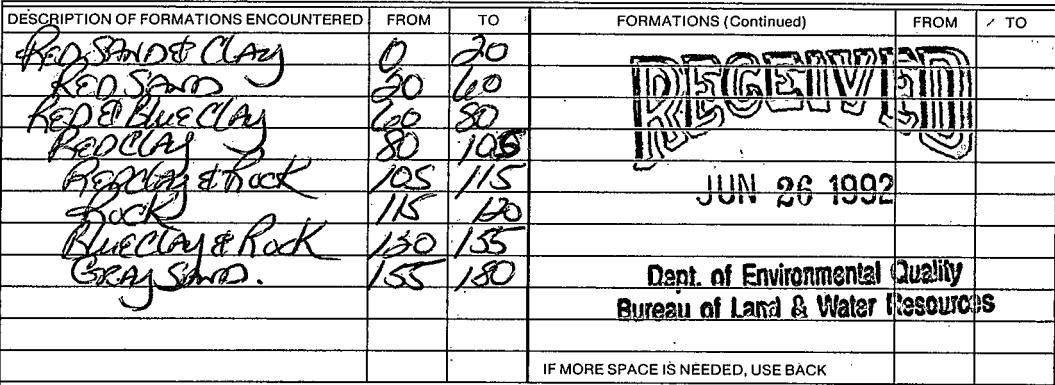 DESCRIPTION OF FORMATIONS ENCOUNTERED FROM TO FORMATIONS (Continued) FROM TO
RED SAND & CLAY 0 20
RED SAND 20 60
RED & BLUE CLAY 60 80
RED CLAY 80 105
RED CLAY & ROCK 105 115
ROCK 115
BLUE CLAY & ROCK 130 155
GRAY SAND. 155 180
RECEIVED
JUN 26 1992
Dept. of Environmental Quality
Bureau of Land & Water Resources
IF MORE SPACE IS NEEDED, USE BACK